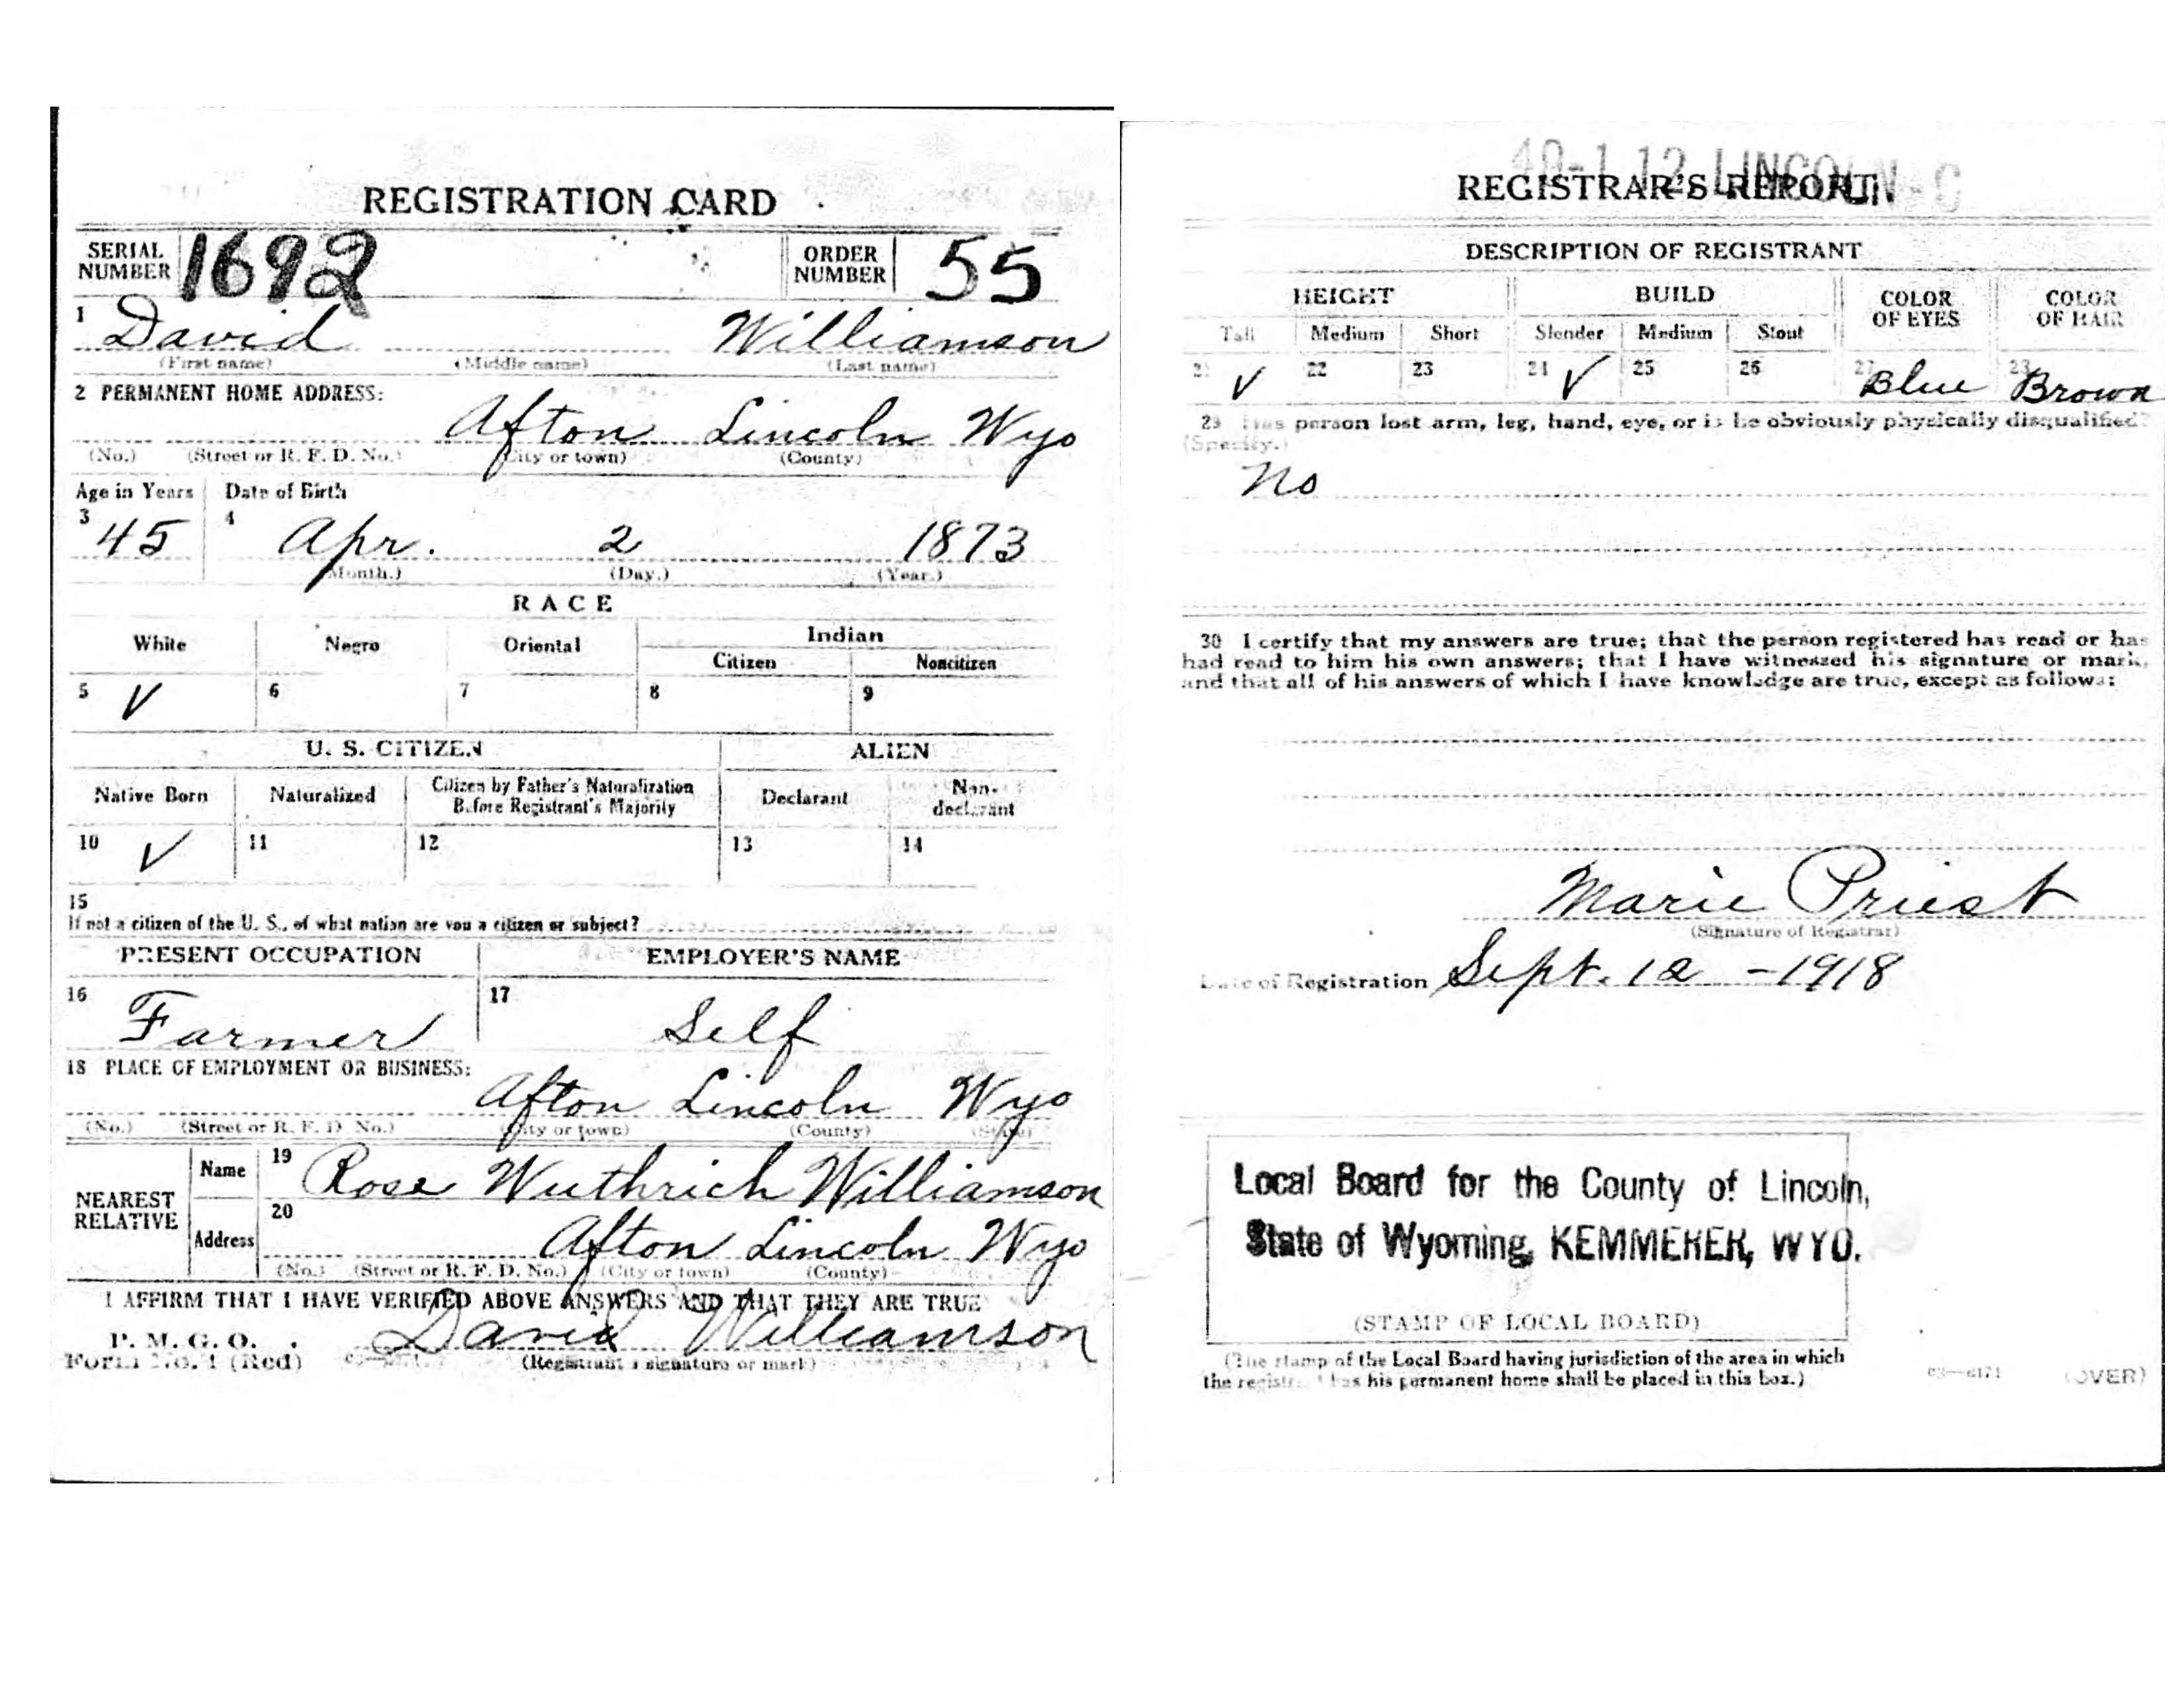 REGISTRATION CARD
SERIAL NUMBER 1692 ORDER NUMBER 55
1 David Williamson
(First name) (Middle name) (Last name)
2 PERMANENT HOME ADDRESS:
Afton Lincoln Wyo
(No.) (Street or R. F. D. No.) (City or town) (County)
Age in Years Date of Birth
3 45 4 Apr. 2 1873
(Month.) (Day.) (Year.)
RACE
White Negro Oriental Indian
Citizen Noncitizen
5 V 6 7 8 9
U. S. CITIZEN ALIEN
Native Born Naturalized Citizen by Father's Naturalization Before Registrant's Majority Declarant Non-declarant
10 V 11 12 13 14
15
If not a citizen of the U. S., of what nation are you a citizen or subject?
PRESENT OCCUPATION EMPLOYER'S NAME
16 Farmer 17 Self
18 PLACE OF EMPLOYMENT OR BUSINESS:
Afton Lincoln Wyo
(No.) (Street or R. F. D. No.) (City or town) (County) (State)
NEAREST RELATIVE Name 19 Rose Wuthrich Williamson
Address 20 Afton Lincoln Wyo
(No.) (Street or R. F. D. No.) (City or town) (County)
I AFFIRM THAT I HAVE VERIFIED ABOVE ANSWERS AND THAT THEY ARE TRUE
P. M. G. O.
Form No. 1 (Red) David Williamson
(Registrant's signature or mark)
49-1-12 LINCOLN-C
REGISTRAR'S REPORT
DESCRIPTION OF REGISTRANT
HEIGHT BUILD COLOR OF EYES COLOR OF HAIR
Tall Medium Short Slender Medium Stout
21 V 22 23 24 V 25 26 27 Blue 28 Brown
29 Has person lost arm, leg, hand, eye, or is he obviously physically disqualified?
(Specify.)
No
30 I certify that my answers are true; that the person registered has read or has
had read to him his own answers; that I have witnessed his signature or mark,
and that all of his answers of which I have knowledge are true, except as follows:
Marie Priest
(Signature of Registrar)
Date of Registration Sept. 12 - 1918
Local Board for the County of Lincoln,
State of Wyoming, KEMMERER, WYO.
(STAMP OF LOCAL BOARD)
(The stamp of the Local Board having jurisdiction of the area in which
the registrant has his permanent home shall be placed in this box.)
03—6171 (OVER)